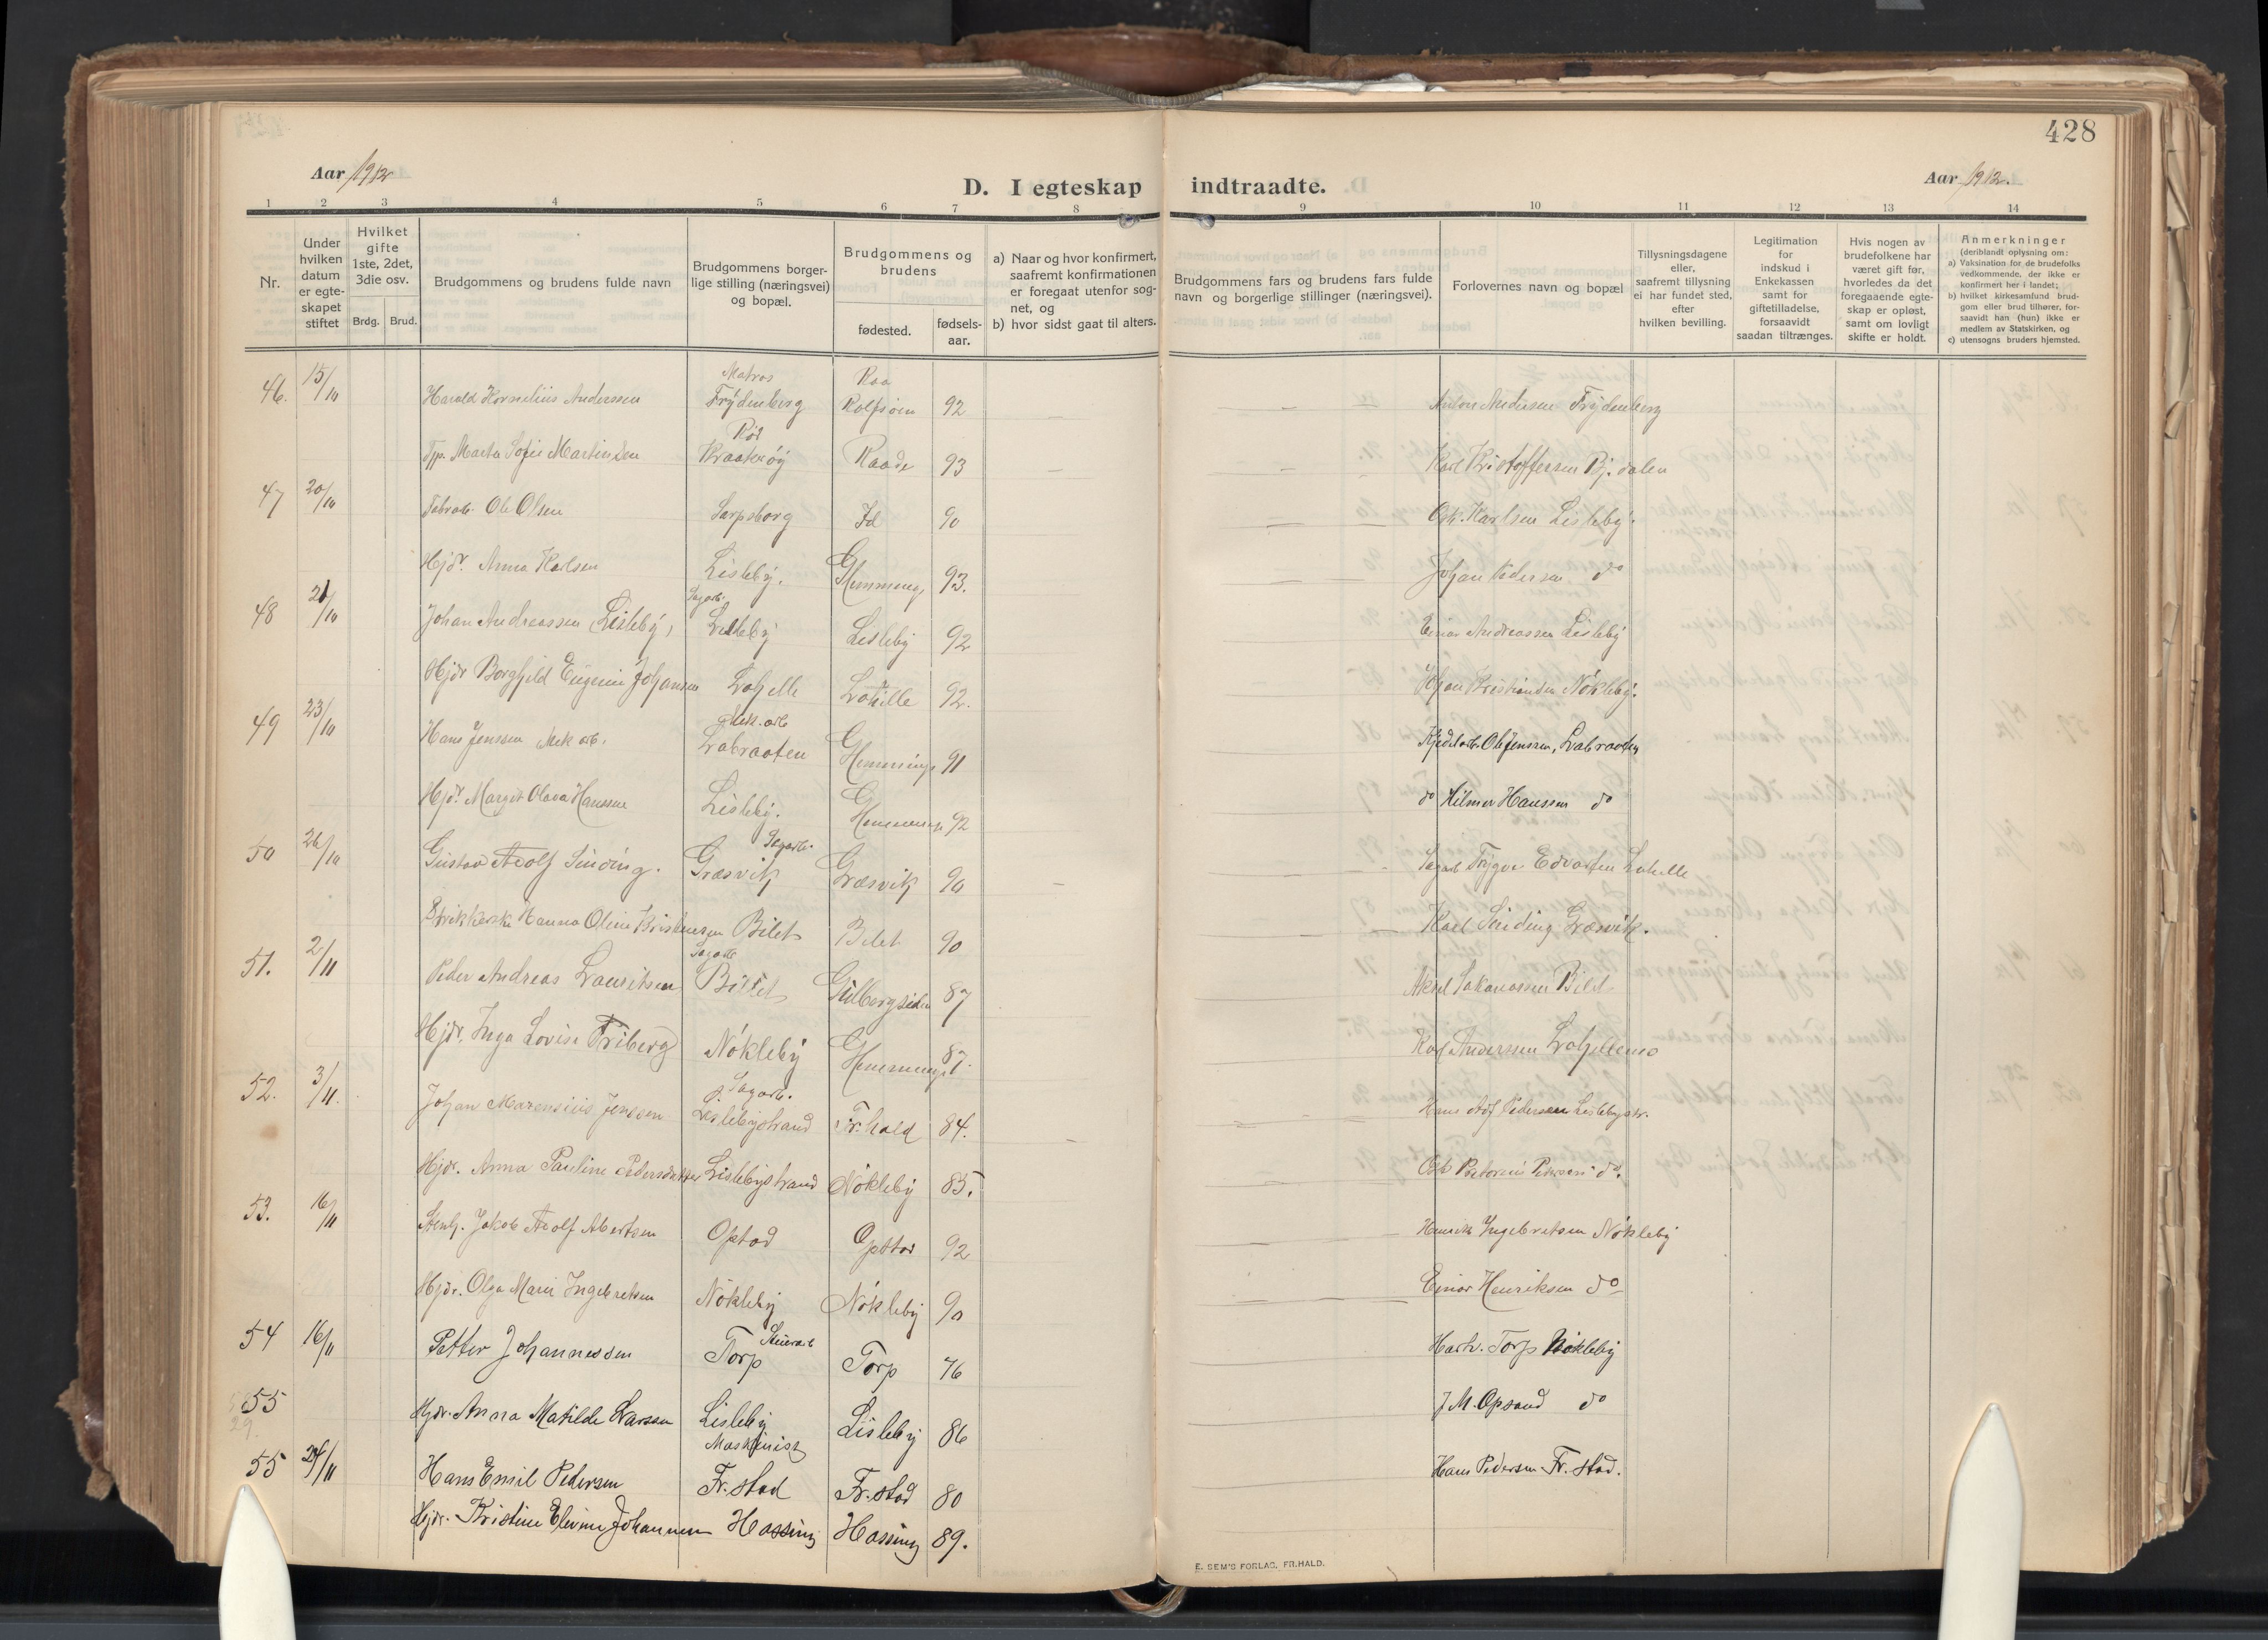 428
Aar 1912
D. I egteskap indtraadte.
Aar 1912.
1 2 3 4 5 6 7 8 9 10 11 12 13 14
Nr.
Under hvilken datum er egteskapet stiftet
Hvilket gifte 1ste, 2det, 3die osv.
Brdg. Brud.
Brudgommens og brudens fulde navn
Brudgommens borgerlige stilling (næringsvei) og bopæl.
Brudgommens og brudens
fødested.
fødsels-aar.
a) Naar og hvor konfirmert, saafremt konfirmationen er foregaat utenfor sognet, og
b) hvor sidst gaat til alters.
Brudgommens fars og brudens fars fulde navn og borgerlige stillinger (næringsvei).
Forlovernes navn og bopæl
Tillysningsdagene eller, saafremt tillysning ei har fundet sted, efter hvilken bevilling.
Legitimation for indskud i Enkekassen samt for giftetilladelse, forsaavidt saadan tiltrænges.
Hvis nogen av brudefolkene har været gift før, hvorledes da det foregaaende egteskap er opløst, samt om lovligt skifte er holdt.
Anmerkninger
(deriblandt oplysning om:
a) Vaksination for de brudefolks vedkommende, der ikke er konfirmert her i landet;
b) hvilket kirkesamfund brudgom eller brud tilhører, forsaavidt han (hun) ikke er medlem av Statskirken, og
c) utensogns bruders hjemsted.
46. 15/10 Harald Kornelius Anderssen Matros Frydenberg Raa Rolfsøen 92 Anton Andersen Frydenberg
Tjp. Marta Sofie Martinsen Rød Kraakerøy Raade 93 Karl Kristoffersen Bj.dalen
47 20/10 Fabrarb. Ole Olsen Sarpsborg Id 90 Osk. Karlsen Lisleby.
Hjdr. Anna Karlsen Lisleby. Glemminge 93. Johan Pedersen do
48 21/10 Johan Andreassen (Lisleby) Sagarb. Lisleby Lisleby 92 Einar Andreassen Lisleby
Hjdr Borghild Eugenie Johansen Lahelle Lahille 92. Johan Kristiansen Nøkleby.
49 23/10 Hans Jenssen Mek arb. Mek. arb Labraaten Glemminge 91 Kjedelarb. Ole Jenssen, Labraaten
Hjdr. Margit Olava Hanssen Lisleby. Glemminge 92 do Hilmer Hanssen do
50 26/10 Gustav Adolf Sinding. Sagarb. Græsvik Græsvik 90 Sagarb Trygve Edvartsen Lahelle
Strikkerske Hanna Oline Kristiansen Bilet Bilet 90 Karl Sinding Græsvik.
51. 2/11 Peder Andreas Lauritsen Sagarb Billet Gulbergsiden 87 Aksel Sakariassen Bilet
Hjdr. Inga Lovise Friberg Nøkleby Glemminge 87. Karl Anderssen Lahellemo
52. 3/11. Johan Marensius Jenssen Sagarb. Lislebystrand Fr.hald 84. Hans Adf Pedersen Lislebystr.
Hjdr. Anna Pauline Pedersdatter Lislebystrand Nøkleby 85. Osk Pedersen do.
53. 16/11 Stenh. Jakob Adolf Albertsen Opstad Opstad 92 Henrik Ingebretsen Nøkleby
Hjdr. Olga Marie Ingebretsen Nøkleby Nøkleby 90 Einar Henriksen do
54 16/11 Petter Johannessen Torp Torp 76 Hartv. Torp Nøkleby
55 Hjdr. Anna Matilde Larssen Lisleby Lisleby 86 J. M. Opsand do
29.
55 24/11 Hans Emil Pedersen Maskinist Fr.stad Fr.stad 80 Hans Pedersen Fr.stad.
Hjdr. Kristine Elevine Johannessen Hassing Hassing 89.
E. SEM'S FORLAG, FR.HALD.